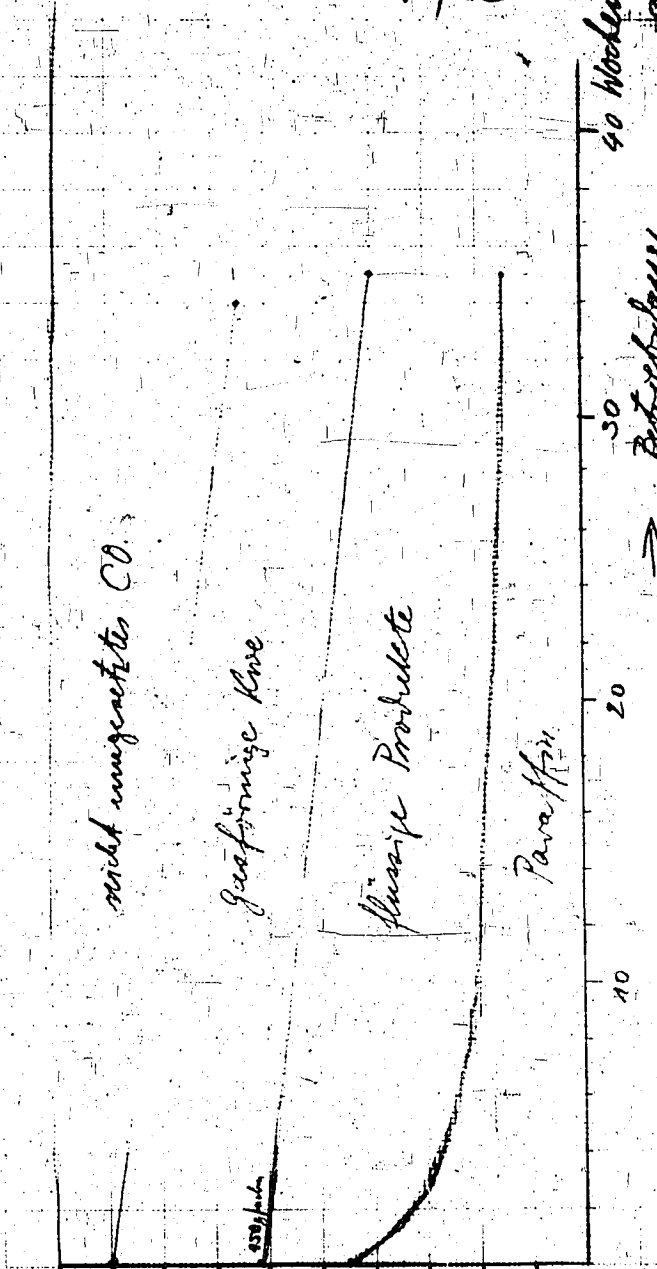 nicht umgesetztes CO.
gasförmige Kwe
flüssige Produkte
Paraffin
10
20
30
40 Wochen
→ Betriebsdauer